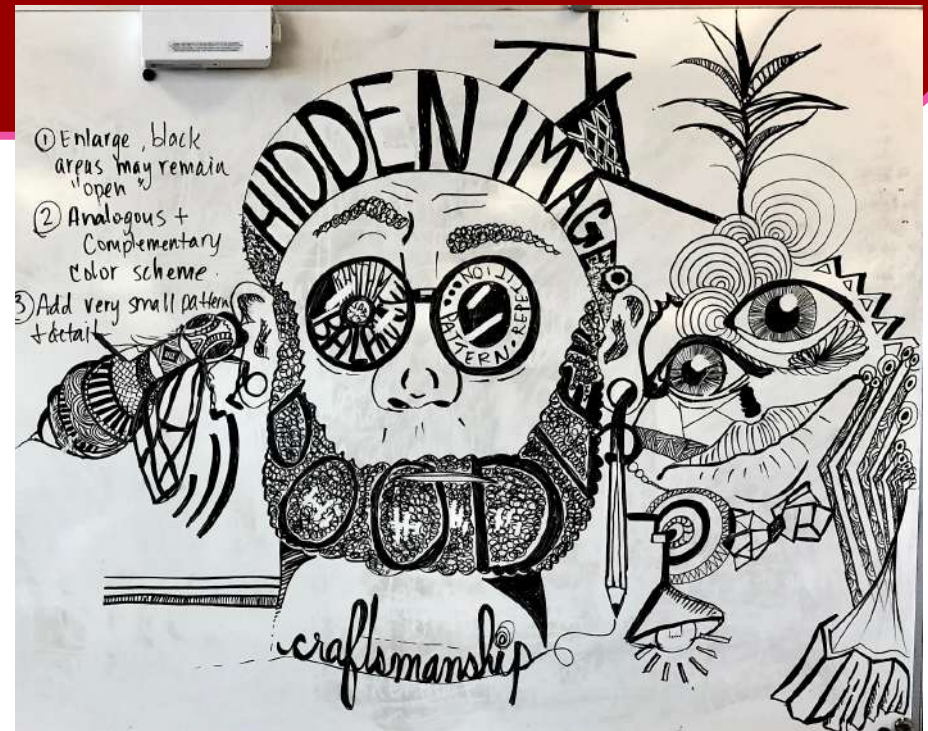 ① Enlarge, black
areas may remain
"open"
② Analogous +
Complementary
color scheme.
③ Add very small pattern
+ detail
HIDDEN IMAGE
RHYTHM
BALANCE
PATTERN • REPETITION
GOOD
craftsmanship